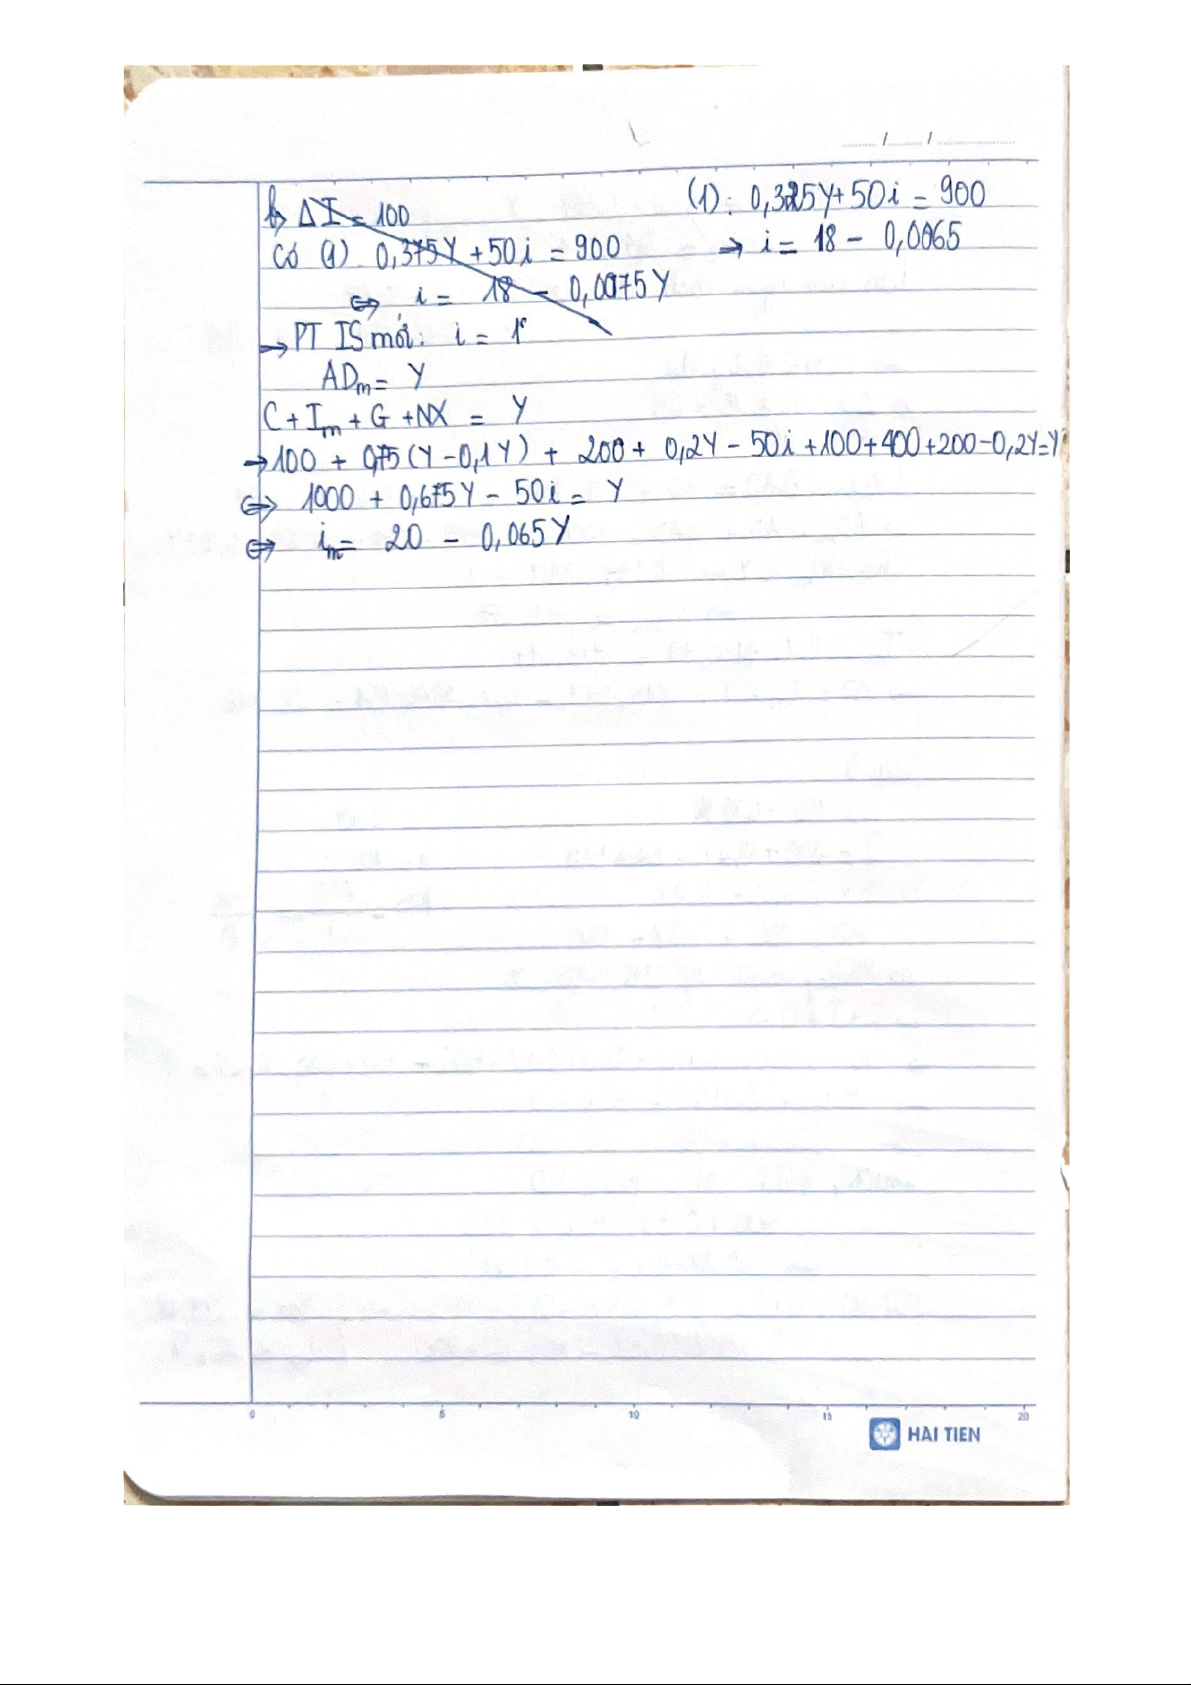 b, ΔI = 100
(1): 0,325Y + 50i = 900
Có (1) 0,375Y + 50i = 900
→ i = 18 - 0,0065
⇔ i = 18 - 0,0075Y
→ PT IS mới: i = 1
ADm = Y
C + Im + G + NX = Y
→ 100 + 0,75(Y - 0,1Y) + 200 + 0,2Y - 50i + 100 + 400 + 200 - 0,2Y = Y
⇔ 1000 + 0,675Y - 50i = Y
⇔ im = 20 - 0,065Y
0 5 10 15 20
HẢI TIẾN